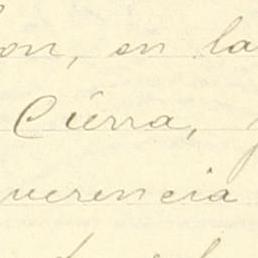 on, en la
Cierra,
verencia